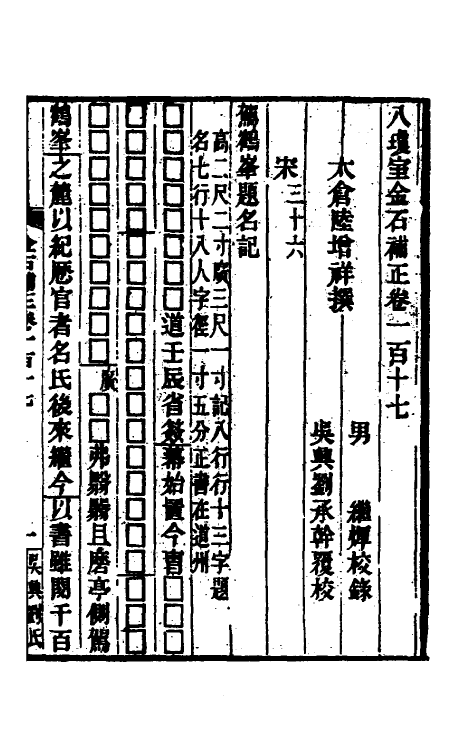 八瓊室金石補正卷一百十七
太倉陸增祥撰
男 繼煇校錄
吳興劉承幹覆校
宋三十六
鴛鶴峯題名記
高二尺二寸廣三尺一寸記八行行十三字題
名七行十八人字徑一寸五分正書在道州
□□□□□□□□道壬辰省簽幕始置今□□□
□□□□□□□□□□□□□□□□□□□□□
□□□□□□□□□□廢□□弗翳翳且磨亭側鴛
鶴峯之麓以紀歷官者名氏後來繼今以書雖閱千百
金石補正卷一百十七
一
吳興劉氏